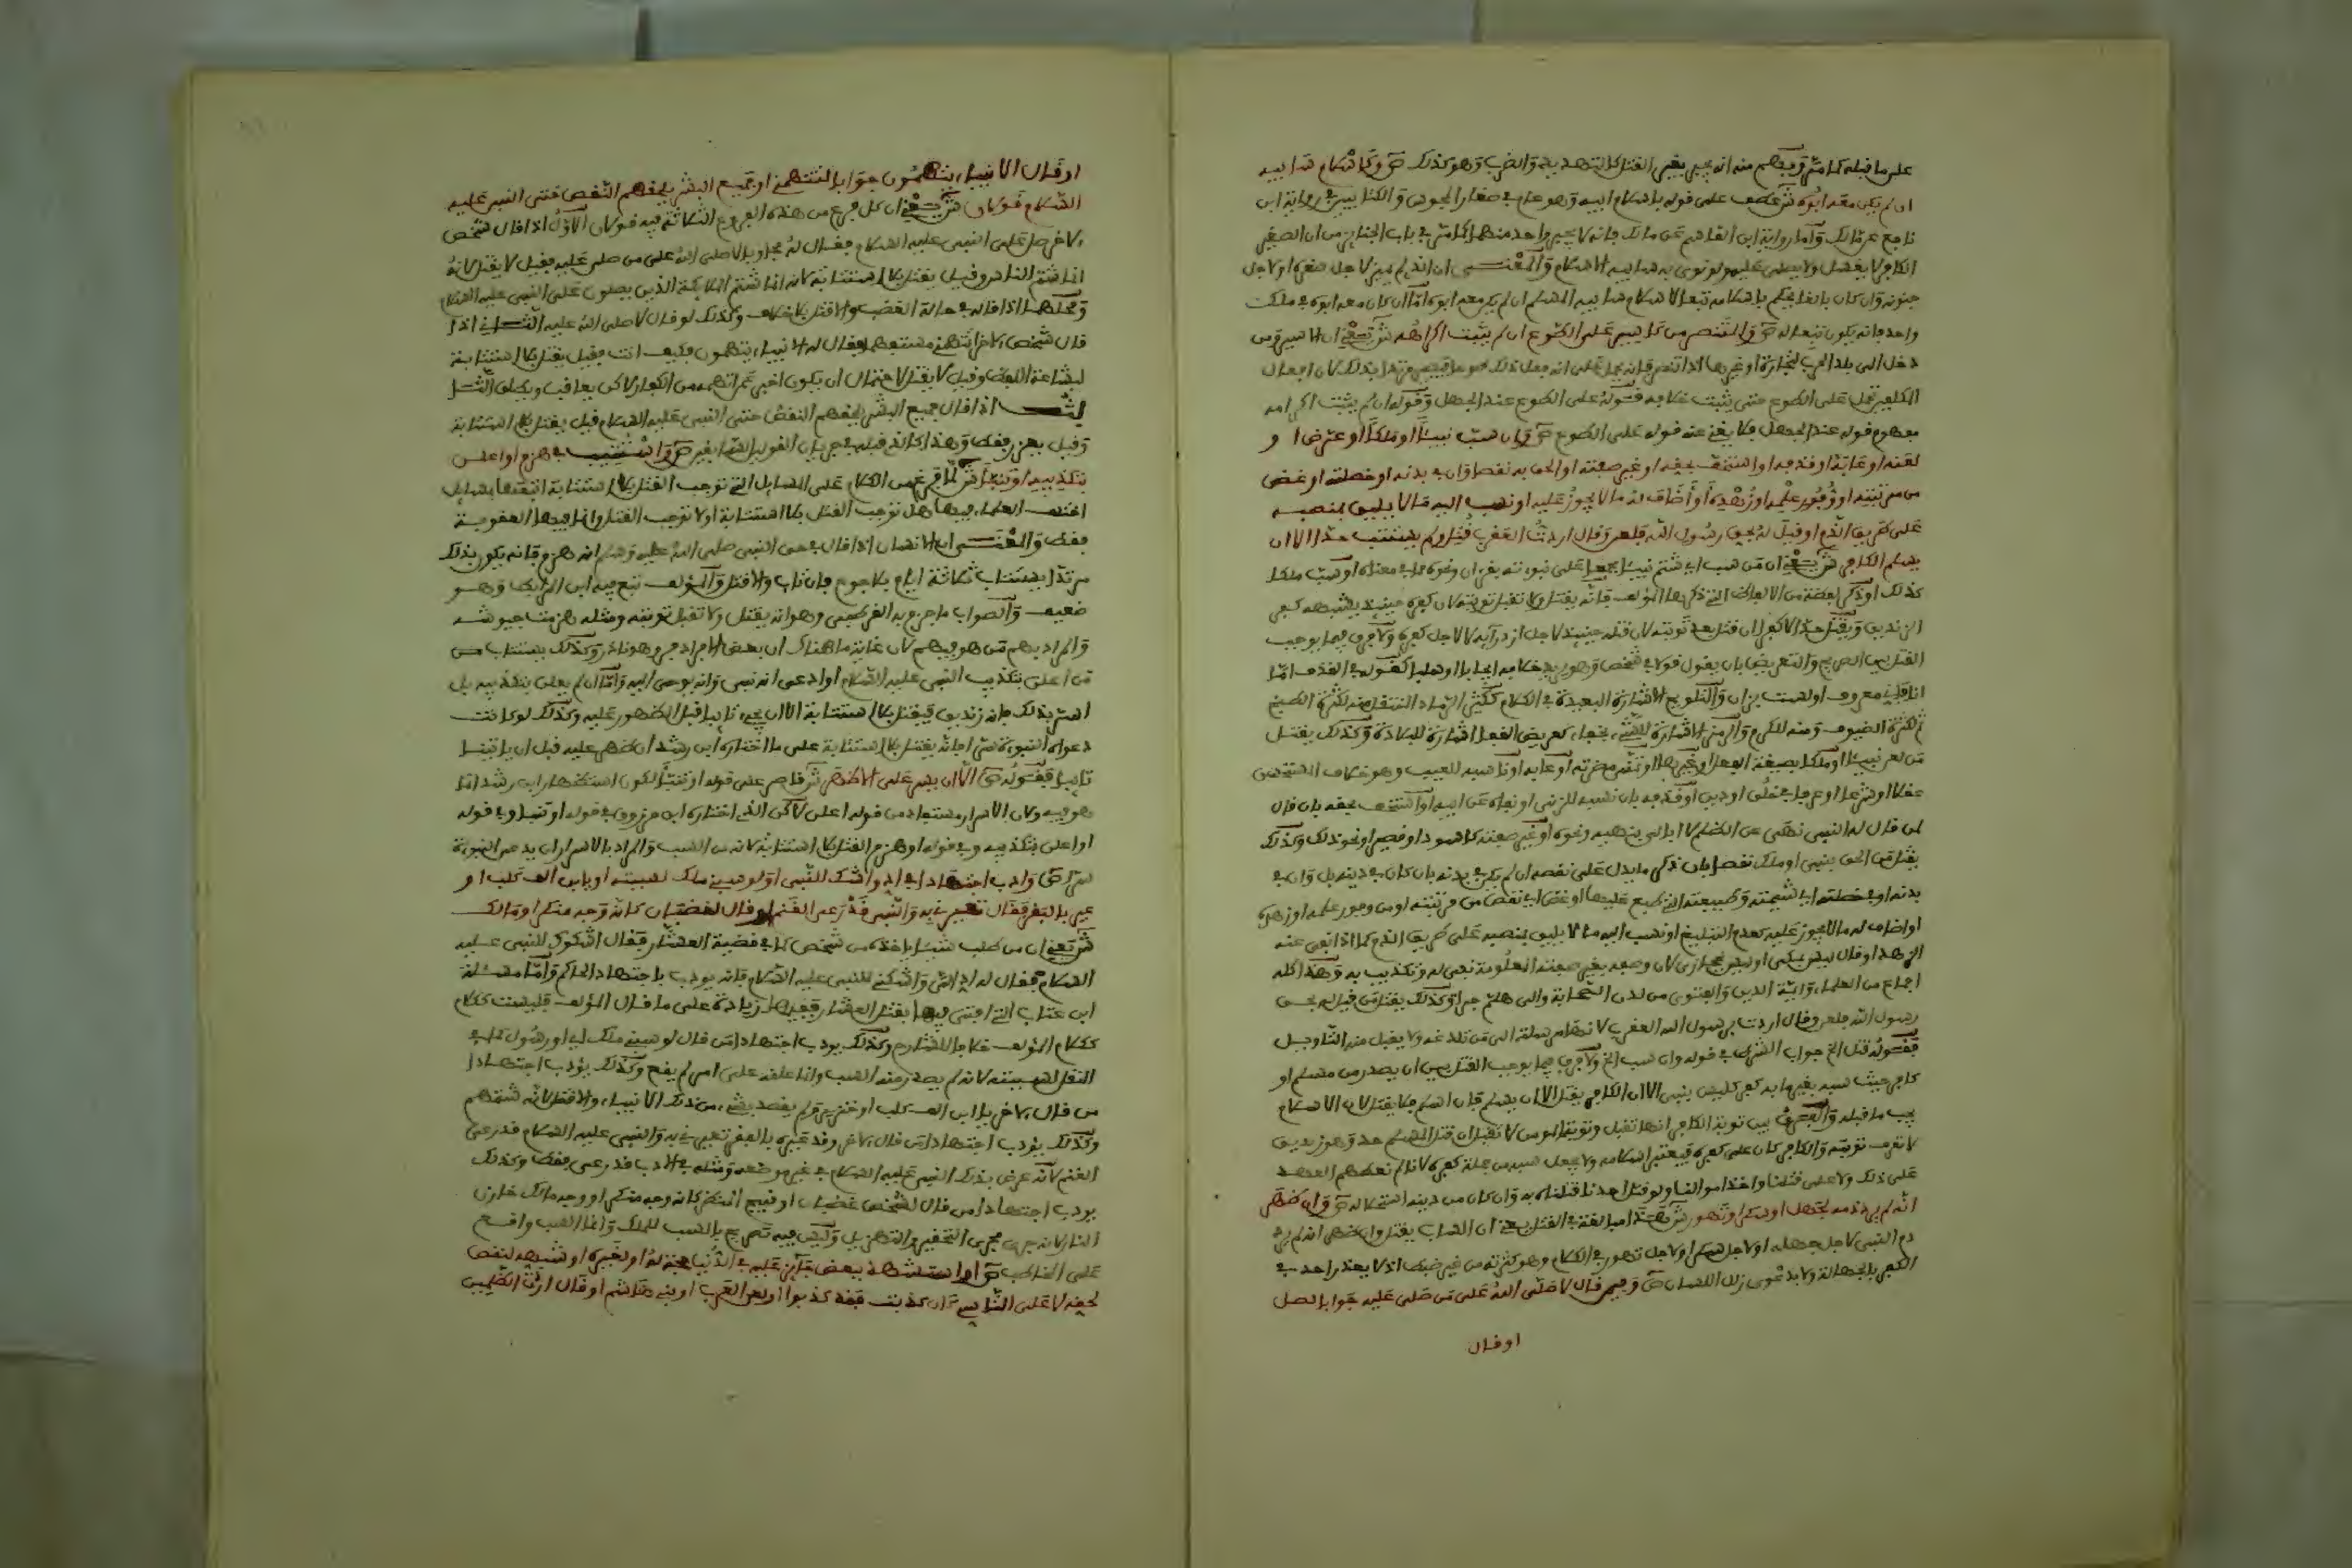 على ما قبله كما مر ويفهم منه انه يجبر بغير القتل كالتهديد والضرب وهو كذلك ص وكاسلام سابيه
ان لم يكن معه ابوه ش عطف على قوله باسلام ابيه وهو عام في صغار المجوس والكتابيين في رواية ابن
نافع عن مالك وأما رواية ابن القاسم عن مالك فانه لا يجبر واحد منهما كما مر في باب الجنائز من ان الصغير
الكافر لا يغسل ولا يصلى عليه ولو نوى به سابيه الاسلام والمعنى ان الذي لم يميز لاجل صغره او لاجل
جنونه وان كان بالغا يحكم باسلامه تبعا لاسلام سابيه المسلم ان لم يكن معه ابوه اما ان كان معه ابوه في ملك
واحد فانه يكون تبعا له ص والمتنصر من كاسير على الطوع ان لم يثبت اكراهه ش يعني ان الاسير ومن
دخل الى بلد الحرب لتجارة او غيرها اذا تنصر فانه يحمل على انه فعل ذلك طوعا فيصير مرتدا بذلك لان افعال
المكلفين تحمل على الطوع حتى يثبت خلافه فقوله على الطوع عند الجهل وقوله ان لم يثبت اكراهه
مفهوم قوله عند الجهل فلا يغني عنه قوله على الطوع ص وان سب نبيئا او ملكا او عرض او
لعنه او عابه او قذفه او استخف بحقه او غير صفته او الحق به نقصا وان في بدنه او خصلته او غض
من مرتبته او وفور علمه او زهده او أضاف له ما لا يجوز عليه او نسب اليه ما لا يليق بمنصبه
على طريق الذم او قيل له بحق رسول الله فلعن وقال اردت العقرب قتل ولم يستتب حدا الا ان
يسلم الكافر ش يعني ان من سب اي شتم نبيئا يجمع على نبوءته بقرءان ونحوه بما في معناه او سب ملكا
كذلك او ذكر لفظة من الالفاظ التي ذكرها المؤلف فانه يقتل ولا تقبل توبته لان كفره حينئذ يشبه كفر
الزنديق ويقتل حدا لا كفرا ان قتل بعد توبته لان قتله حينئذ لاجل ازدرائه لا لاجل كفره ولا فرق فيما يوجب
القتل بين الصريح والتعريض بان يقول قولا في شخص وهو يريد خلافه ايجابا او سلبا كقوله في القذف اما
انا فإني معروف او لست بزان والتلويح الاشارة البعيدة في الكلام ككثير الرماد المنتقل منه لكثرة الطبخ
ثم لكثرة الضيوف ومنه للكرم والرمز الاشارة للشيء بخفاء كعريض القفا اشارة للبلادة وكذلك يقتل
من لعن نبيئا او ملكا بصيغة الفعل او غيرها او تمنى مضرته او عابه او ناسبه للعيب وهو خلاف المستحسن
عقلا او شرعا او عرفا بخلق او دين او قذفه بان نسبه للزنى او نفاه عن ابيه او استخف بحقه بان قال
لمن قال له النبي نهى عن الظلم لا ابالي بنهيه ونحوه او غير صفته كاسود او قصير او نحو ذلك وكذلك
يقتل من الحق بنبي او ملك نقصا بان ذكر ما يدل على نقصه ان لم يكن في بدنه بان كان في دينه بل وان في
بدنه او في خصلته اي شيمته وطبيعته التي طبع عليها او غض اي نقص من مرتبته او من وفور علمه او زهده
او اضاف له ما لا يجوز عليه كعدم التبليغ او نسب اليه ما لا يليق بمنصبه على طريق الذم كما اذا نفى عنه
الزهد او قال ليس بمكي او ليس بحجازي لان وصفه بغير صفته المعلومة نفي له وتكذيب به وهذا كله
اجماع من العلماء وايمة الدين والفتوى من لدن الصحابة والى هلم جرا وكذلك يقتل من قيل له بحق
رسول الله فلعن وقال اردت برسول الله العقرب لانها مرسلة الى من تلدغه ولا يقبل منه التاويل
فقوله قتل الخ جواب الشرط في قوله وان سب الخ ولا فرق فيما يوجب القتل بين ان يصدر من مسلم او
كافر حيث سبه بغير ما به كفر كليس بنبي الا ان الكافر يقتل الا ان يسلم فان اسلم فلا يقتل لان الاسلام
يجب ما قبله والفرق بين توبة الكافر انها تقبل وتوبة المومن لا تقبل ان قتل المسلم حد وهو زنديق
لا تعرف توبته والكافر كان على كفره فيعتبر اسلامه ولا يجعل سبه من جملة كفره لانا لم نعطهم العهد
على ذلك ولا على قتلنا واخذ اموالنا ولو قتل احدنا قتلناه به وان كان من دينه استحلاله ص وان ظهر
انه لم يرد ذمه لجهل او سكر او تهور ش هذا مبالغة في القتل يعني ان الساب يقتل وان ظهر انه لم يرد
ذم النبي لاجل جهله او لاجل سكر او لاجل تهور في الكلام وهو كثرته من غير ضبط اذ لا يعذر احد في
الكفر بالجهالة ولا بدعوى زلل اللسان ص وفيمن قال لا صلى الله على من صلى عليه جوابا لصل
او قال
او قال الانبياء يتهمون جوابا لتتهمني او جميع البشر يلحقهم النقص حتى النبي عليه
السلام قولان ش يعني ان كل فرع من هذه الفروع الثلاثة فيه قولان الاول اذا قال شخص
لاخر صل على النبي عليه السلام فقال له مجاوبا لا صلى الله على من صلى عليه فقيل لا يقتل لانه
انما شتم الناس وقيل يقتل بلا استتابة لانه انما شتم الملايكة الذين يصلون على النبي عليه السلام
ومحلهما اذا قاله في حالة الغضب والا قتل بلا خلاف وكذلك لو قال لا صلى الله عليه الثاني اذا
قال شخص لاخر اتتهمني مستفهما فقال له الانبياء يتهمون فكيف انت فقيل يقتل بلا استتابة
لبشاعة اللفظ وقيل لا يقتل لاحتمال ان يكون اخبر عمن اتهمهم من الكفار لاكن يعاقب ويطلق الثا
لث اذا قال جميع البشر يلحقهم النقص حتى النبي عليه السلام قيل يقتل بلا استتابة
وقيل يعزر فقط وهذا كالذي قبله في جريان القولين السابقين ص واستتيب في هزم او اعلن
بتكذيبه او تنبأ ش لما فرغ من الكلام على المسايل التي توجب القتل بلا استتابة اتبعها بمسايل
اختلف العلماء فيها هل توجب القتل بلا استتابة او لا توجب القتل وانما فيها العقوبة
فقط والمعنى ان الانسان اذا قال في حق النبي صلى الله عليه وسلم انه هزم فانه يكون بذلك
مرتدا يستتاب ثلاثة ايام بلا جوع فان تاب والا قتل والمؤلف تبع فيه ابن المرابط وهو
ضعيف والصواب ما جزم به القرطبي وهو انه يقتل ولا تقبل توبته ومثله هزمت جيوشه
والمراد بهم من هو فيهم لان غاية ما هناك ان بعض الافراد فر وهو نادر وكذلك يستتاب من
من اعلن بتكذيب النبي عليه السلام او ادعى انه نبي وانه يوحى اليه واما ان لم يعلن بتكذيبه بل
اسر بذلك فانه زنديق فيقتل بلا استتابة الا ان يجيء تايبا قبل الظهور عليه وكذلك لو كانت
دعواه النبوءة سرا فانه يقتل بلا استتابة على ما اختاره ابن رشد ان ظهر عليه قبل ان ياتينا
تايبا فقوله ص الا ان يسر على الاظهر ش قاصر على قوله او تنبأ لكون استظهار ابن رشد انما
هو فيه ولان الاسرار مستفاد من قوله اعلن لاكن الذي اختاره ابن مرزوق في قوله او تنبأ وفي قوله
او اعلن بتكذيبه وفي قوله او هزم القتل بلا استتابة لانه من السب والمراد بالاسرار ان يدعي النبوءة
سرا ص وادب اجتهادا في اد واشك للنبي او لو سبني ملك لسببته او يا بن الف كلب او
عير بالفقر فقال تعيرني به والنبي قد رعى الغنم او قال لغضبان كانه وجه منكر او مالك
ش يعني ان من طلب شيئا ياخذه من شخص كما في قضية العشار فقال اشكوك للنبي عليه
السلام فقال له اد الي واشكني للنبي عليه السلام فانه يودب باجتهاد الحاكم وأما مسئلة
ابن عتاب التي افتى فيها بقتل العشار ففيها زيادة على ما قال المؤلف فليست ككلام
ككلام المؤلف خلافا للشارح وكذلك يودب اجتهادا من قال لو سبني ملك اي او رسول كما في
النقل لسببته لانه لم يصدر منه السب وانما علقه على امر لم يقع وكذلك يؤدب اجتهادا
من قال لاخر يا ابن الف كلب او خنزير ولم يقصد بشيء من ذلك الانبياء والا قتل لانه شتمهم
وكذلك يؤدب اجتهادا من قال لاخر وقد عيره بالفقر تعيرني به والنبي عليه السلام قد رعى
الغنم لانه عرض بذكر النبي عليه السلام في غير موضعه ومثله في الادب قد رعى فقط وكذلك
يودب اجتهادا من قال لشخص غضبان او قبيح المنظر كانه وجه منكر او وجه مالك خازن
النار لانه جرى مجرى التحقير والتهزيل وليس فيه تصريح بالسب للملك وانما السب واقع
على المخاطب ص او استشهد ببعض جايز عليه في الدنيا حجة له او لغيره او شبه لنقص
لحقه لا على التأسي كان كذبت فقد كذبوا او لعن العرب او بني هاشم او قال اردت الظلمين